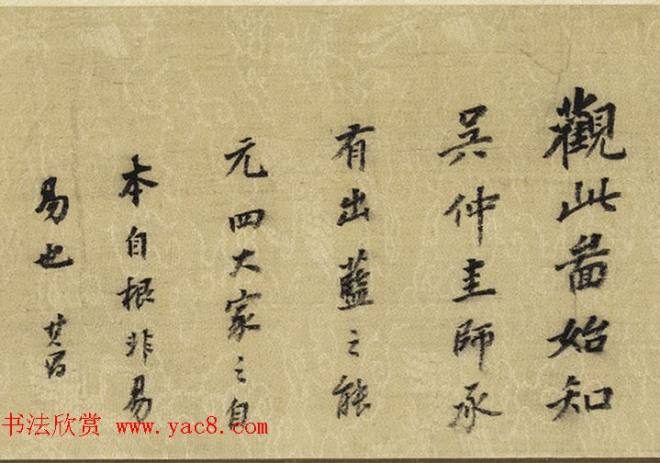 觀此啚始知
吳仲圭師承
有出藍之能
元四大家之自
本自根非易
易也 其昌
书法欣赏 www.yac8.com